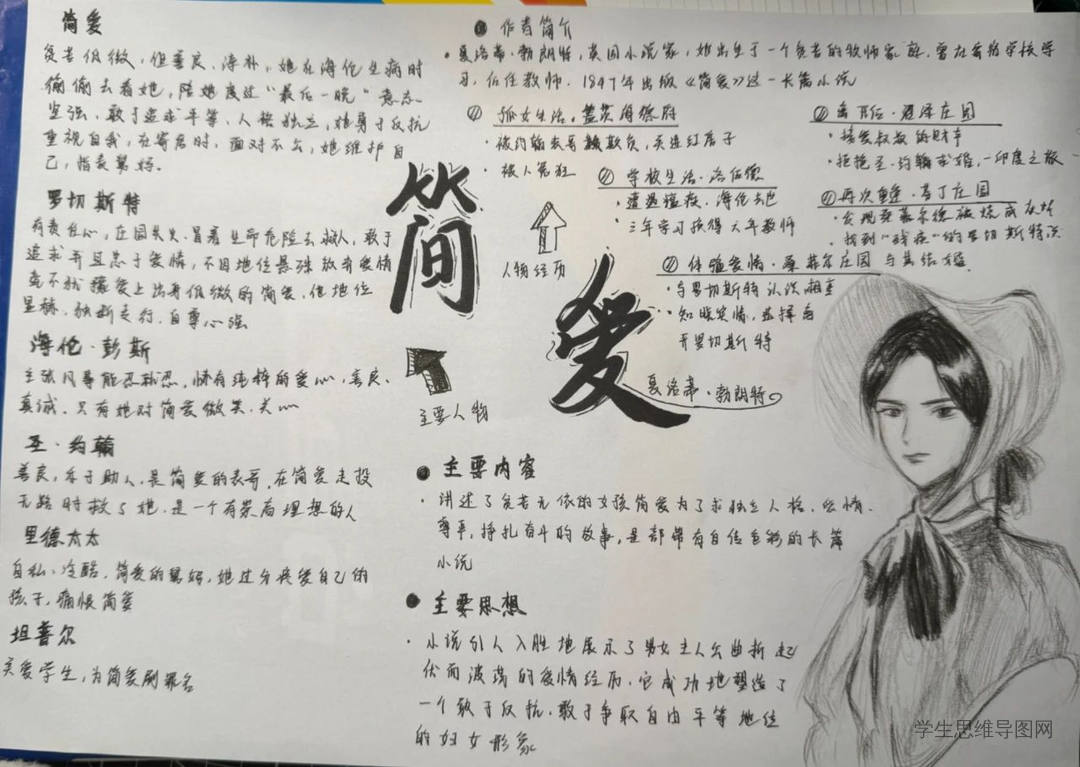 简爱
贫苦低微，但善良、淳朴，她在海伦生病时
偷偷去看她，陪她度过“最后一晚”意志
坚强、敢于追求平等、人格独立，勇于反抗
重视自我，在寄居时，面对不公，她维护自
己，指责舅妈。
罗切斯特
有责任心，庄园失火，冒着生命危险去救人，敢于
追求并且忠于爱情，不因地位悬殊放弃爱情
毫不犹豫爱上出身低微的简爱，但地位
显赫，独断专行，自尊心强
海伦·彭斯
主张凡事能忍就忍，怀有纯粹的爱心，善良、
真诚，只有她对简爱微笑、关心
圣·约翰
善良，乐于助人，是简爱的表哥，在简爱走投
无路时救了她，是一个有崇高理想的人
里德太太
自私、冷酷，简爱的舅妈，她过分疼爱自己的
孩子，痛恨简爱
坦普尔
关爱学生，为简爱刷罪名
作者简介
夏洛蒂·勃朗特，英国小说家，她出生于一个贫苦的牧师家庭，曾在寄宿学校学
习，后任教师，1847年出版《简爱》这一长篇小说
孤女生活·盖茨海德府
被约翰表哥欺负，关进红房子
被人冤枉
学校生活·洛伍德
遭遇瘟疫，海伦去世
三年学习获得大年教师
体验爱情·桑菲尔庄园
与罗切斯特认识、相恋
知晓实情，选择离
开罗切斯特
离 出走·泽庄园
接受叔叔的财产
拒绝圣·约翰求婚，一印度之旅
再次重逢·芬丁庄园
发现桑菲尔德被烧成灰烬
找到“残疾”的罗切斯特
与其结婚
人物经历
简爱
夏洛蒂·勃朗特
主要人物
主要内容
讲述了贫苦无依的女孩简爱为了求独立人格、爱情、
尊严，挣扎奋斗的故事，是部带有自传色彩的长篇
小说
主要思想
小说引人入胜地展示了男女主人公曲折起
伏而波荡的爱情经历，它成功地塑造了
一个敢于反抗，敢于争取自由平等地位
的妇女形象
学生思维导图网